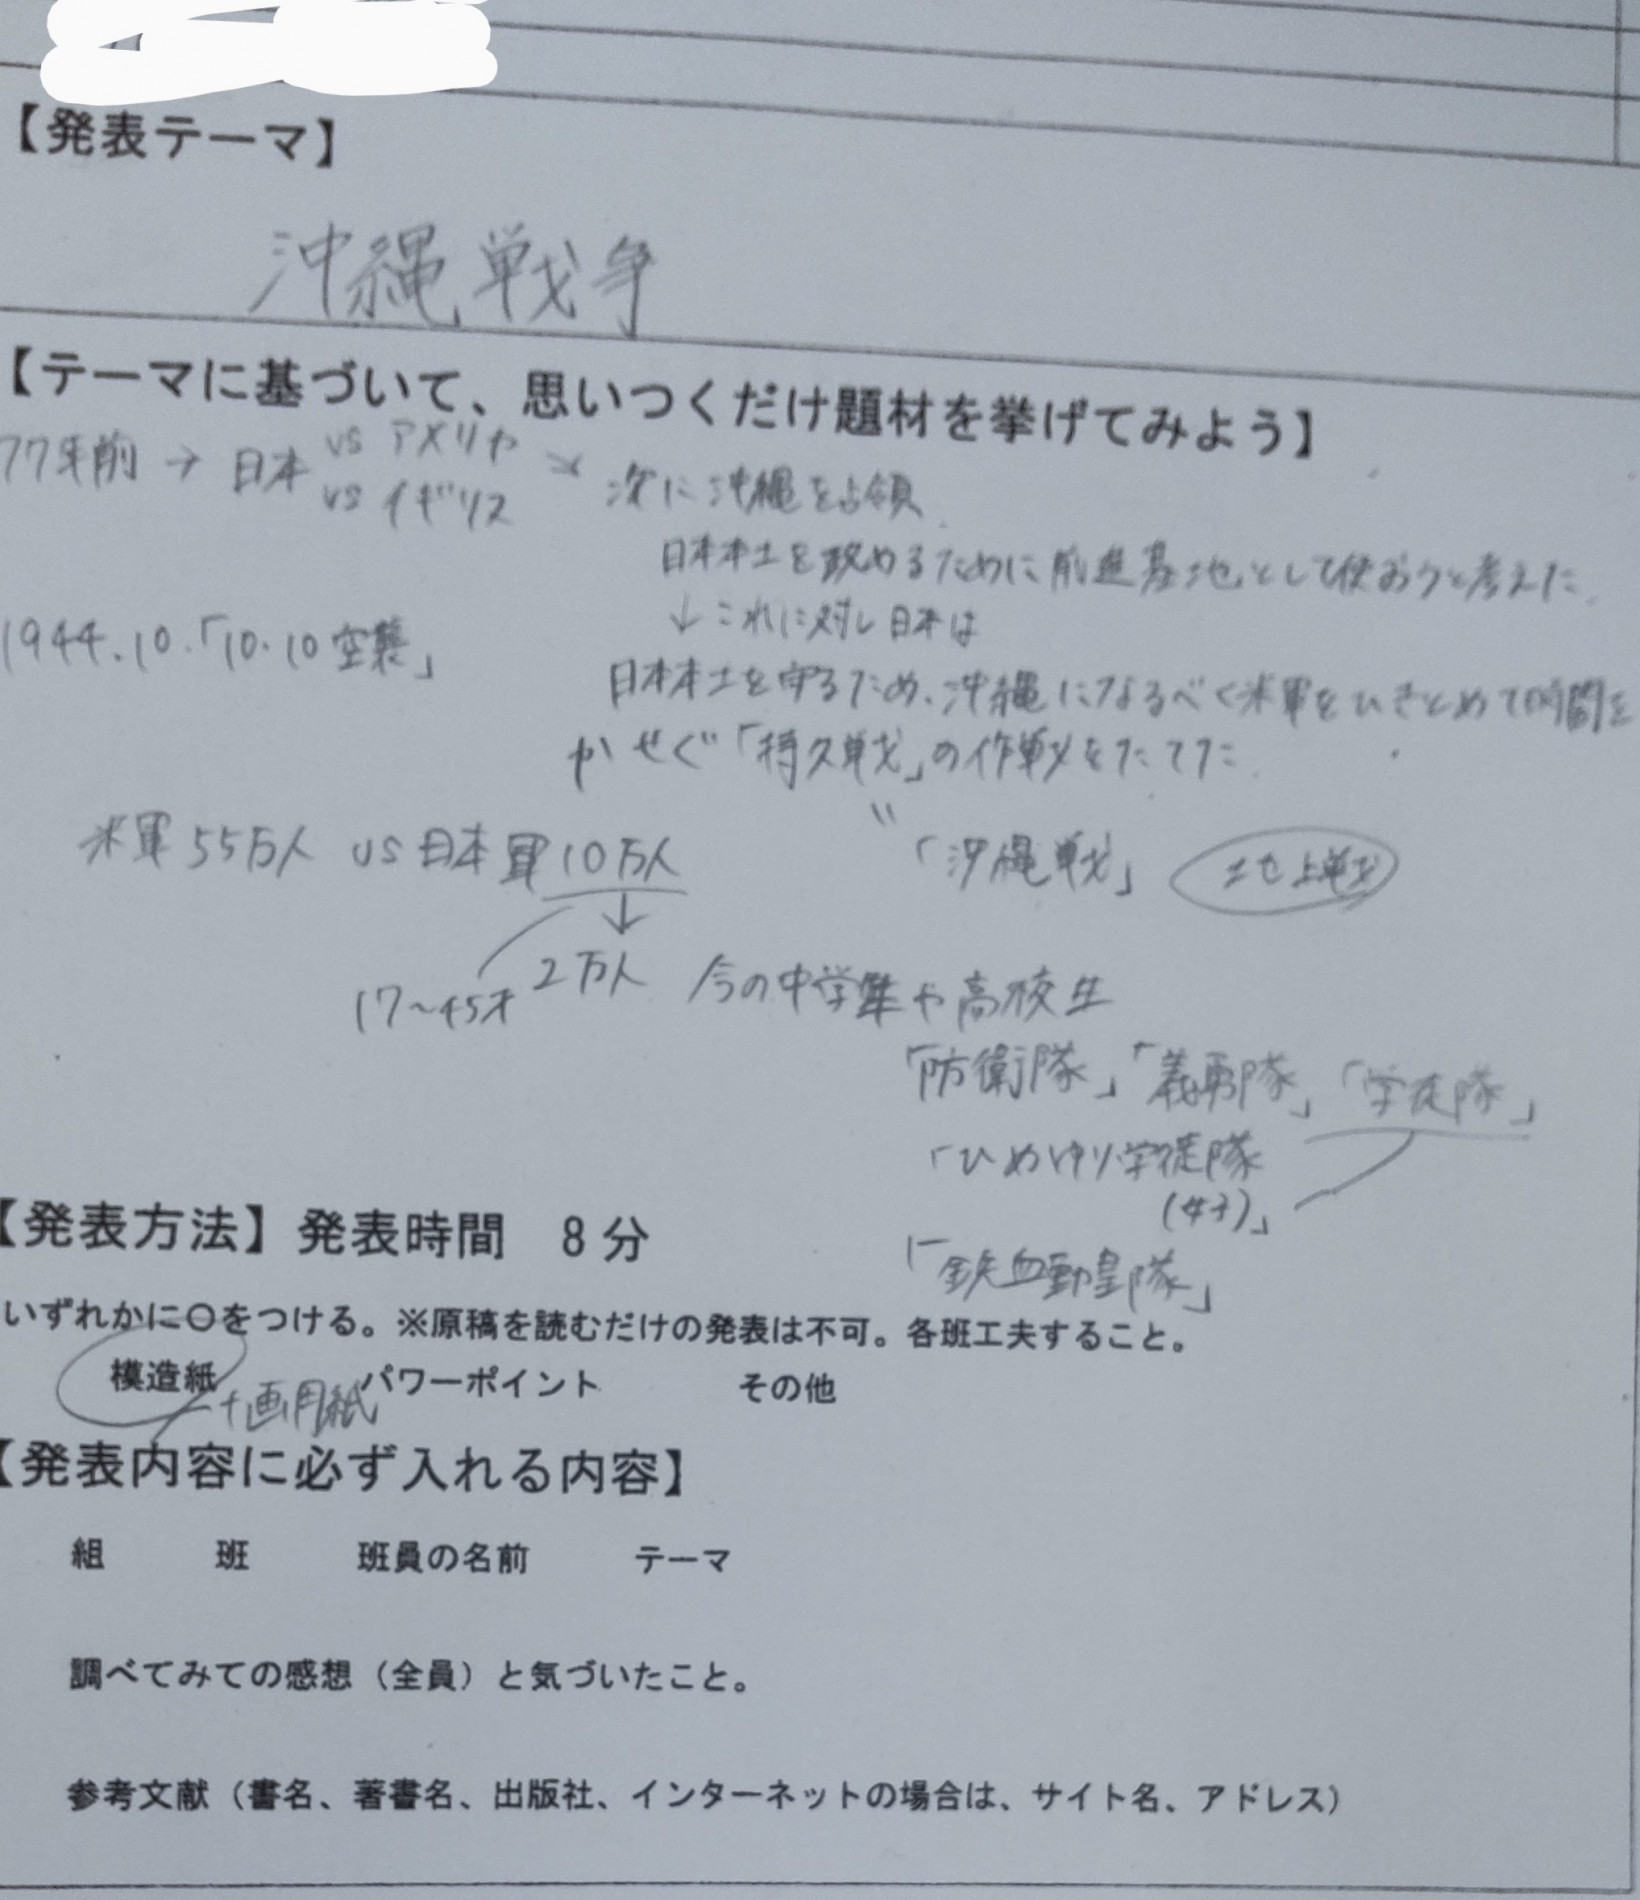 【発表テーマ】
沖縄戦争
【テーマに基づいて、思いつくだけ題材を挙げてみよう】
77年前 → 日本 vs アメリカ
vs イギリス
次に沖縄を占領
日本本土を攻めるために前進基地として使おうと考えた
↓これに対し日本は
1944.10.「10・10空襲」
日本本土を守るため、沖縄になるべく米軍をひきとめて時間を
かせぐ「持久戦」の作戦をたてた
〃
米軍55万人 vs 日本軍10万人
「沖縄戦」 地上戦
↓
17〜45才 2万人 今の中学生や高校生
「防衛隊」「義勇隊」「学徒隊」
「ひめゆり学徒隊
(女子)」
「鉄血勤皇隊」
【発表方法】発表時間 8分
いずれかに○をつける。※原稿を読むだけの発表は不可。各班工夫すること。
模造紙 +画用紙 パワーポイント その他
【発表内容に必ず入れる内容】
組 班 班員の名前 テーマ
調べてみての感想（全員）と気づいたこと。
参考文献（書名、著書名、出版社、インターネットの場合は、サイト名、アドレス）